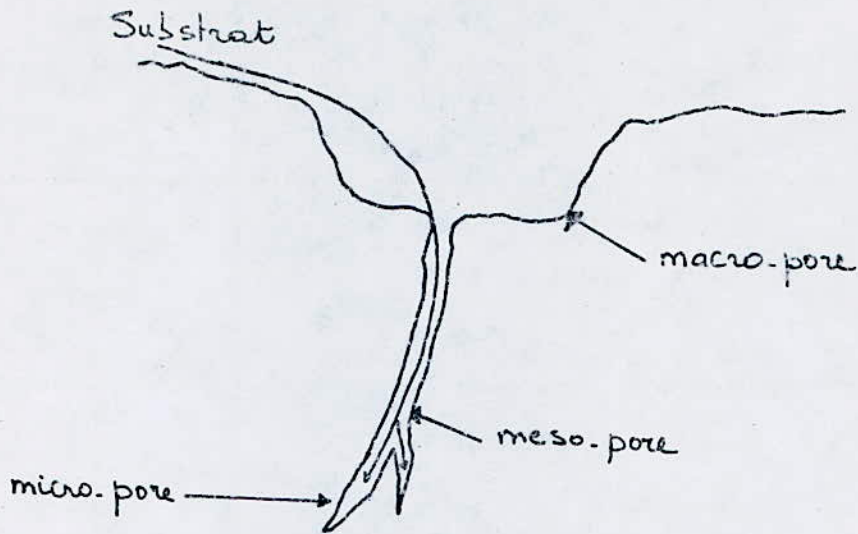 Substrat
macro-pore
meso-pore
micro-pore